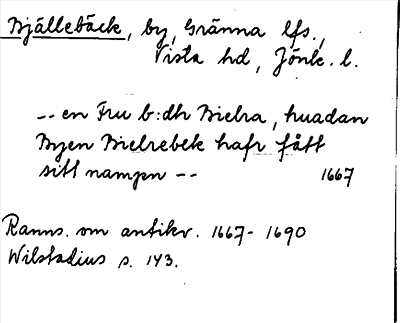 Bjällebäck, by, Gränna lfs.,
Vista hd, Jönk. l.
-- en Fru b:dh Bielra, huadan
Byen Bielrebek hafr fått
sitt nampn -- 1667
Ranns. om antikv. 1667-1690
Wilstadius s. 143.